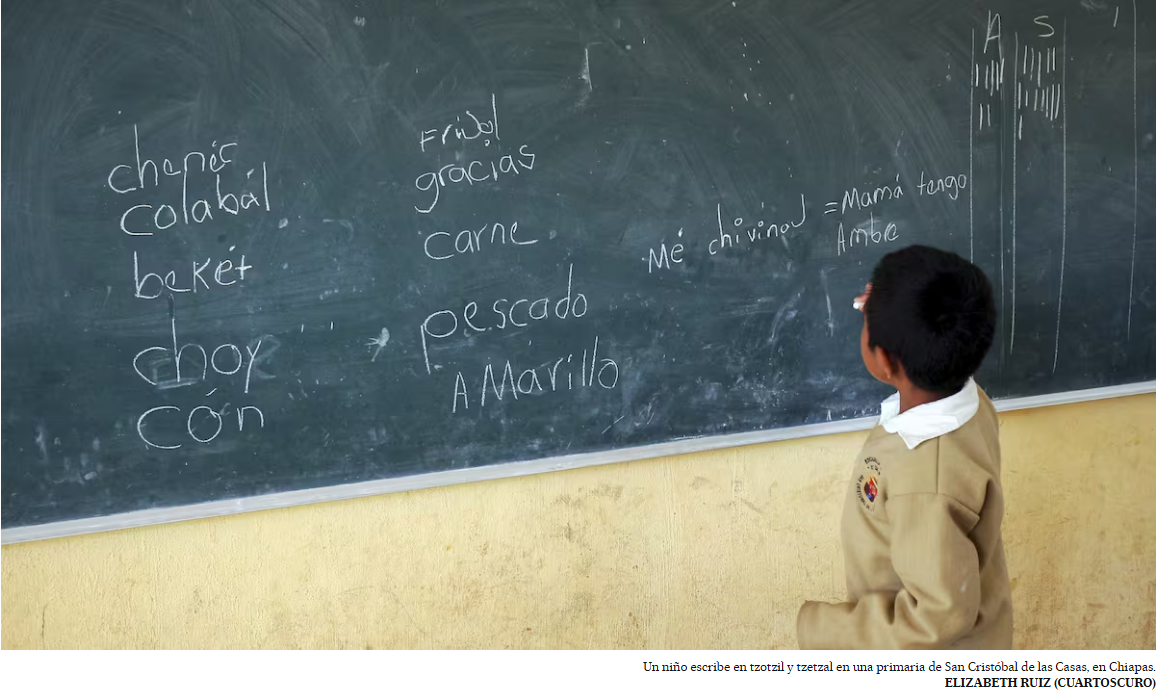 A S
chenéc
colabál
bekét
choy
cón
Frijol
gracias
carne
pescado
AMarillo
Mé chivinaJ =Mamá tengo
Ambre
Un niño escribe en tzotzil y tzetzal en una primaria de San Cristóbal de las Casas, en Chiapas.
ELIZABETH RUIZ (CUARTOSCURO)